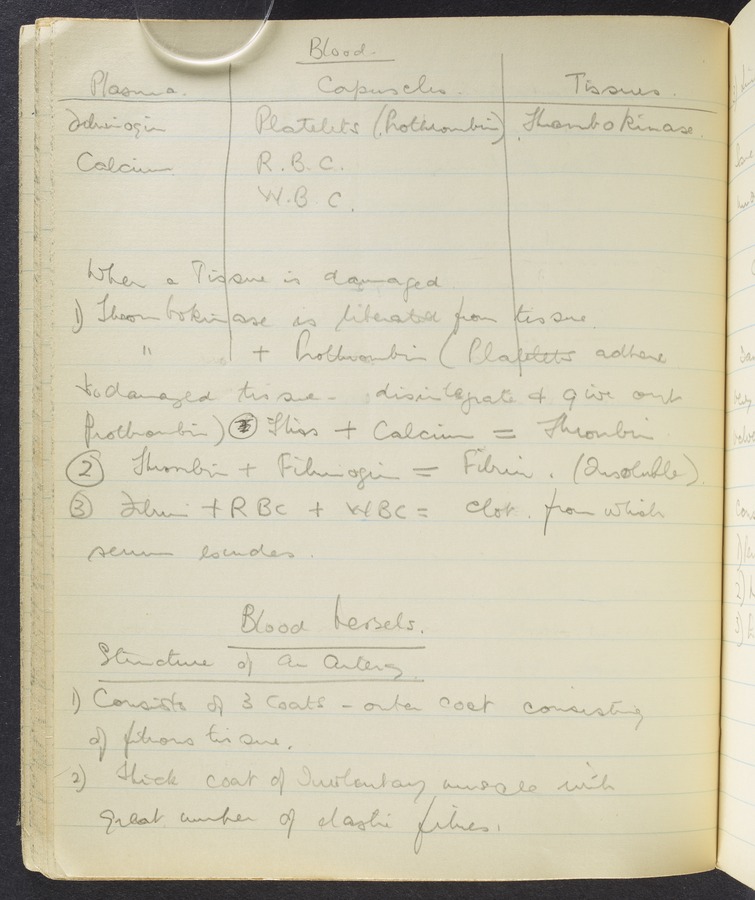 Blood.
Plasma. Capuscles. Tissues.
Fibrinogin Platelets (Prothrombin) Thrombokinase.
Calcium. R.B.C.
W.B.C.
When a Tissue is damaged
1) Thrombokinase is liberated from tissue.
" + Prothrombin (Platelets adhere
to damaged tissue - disintegrate & give out
Prothrombin) This + Calcium = Thrombin
2 Thrombin + Fibrinogin = Fibrin. (Insoluble).
3 Fibrin + RBC + WBC = clot. from which
serum exudes.
Blood Vessels.
Structure of an Artery
1) Consists of 3 coats - outer coat consisting
of fibrous tissue.
2) Thick coat of Involuntary muscle with
great number of elastic fibres.